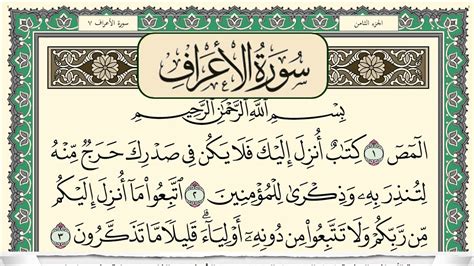 الجزء الثامن
سورة الأعراف ٧
سُورَةُ الأَعْرَافِ
بِسْمِ اللَّهِ الرَّحْمَٰنِ الرَّحِيمِ
الٓمٓصٓ ١ كِتَٰبٌ أُنزِلَ إِلَيْكَ فَلَا يَكُن فِى صَدْرِكَ حَرَجٌ مِّنْهُ
لِتُنذِرَ بِهِۦ وَذِكْرَىٰ لِلْمُؤْمِنِينَ ٢ ٱتَّبِعُوا۟ مَآ أُنزِلَ إِلَيْكُم
مِّن رَّبِّكُمْ وَلَا تَتَّبِعُوا۟ مِن دُونِهِۦٓ أَوْلِيَآءَ ۗ قَلِيلًا مَّا تَذَكَّرُونَ ٣